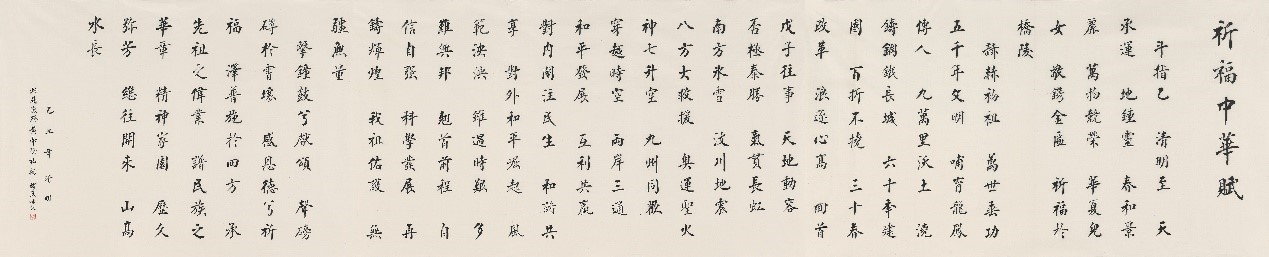 祈福中華賦
斗指乙 清明至 天
承運 地鍾靈 春和景
麗 萬物競榮 華夏兒
女 敬鑄金匾 祈福於
橋陵
赫赫初祖 萬世垂功
五千年文明 哺育龍鳳
傳人 九萬里沃土 澆
鑄鋼鐵長城 六十年建
國 百折不撓 三十春
改革 浪逐心高 回首
戊子往事 天地動容
否極泰勝 氣貫長虹
南方冰雪 汶川地震
八方大救援 奧運聖火
神七升空 九州同歡
穿越時空 兩岸三通
和平發展 互利共贏
對內關注民生 和諧共
享 對外和平崛起 風
範泱泱 雖遇時艱 多
難興邦 翹首前程 自
信自强 科學發展 再
鑄輝煌 我祖佑護 無
疆無量
擊鐘鼓兮獻頌 聲磅
礴於霄壤 感恩德兮祈
福 澤普施於四方 承
先祖之偉業 譜民族之
華章 精神家園 歷久
彌芳 繼往開來 山高
水長
乙丑年清明